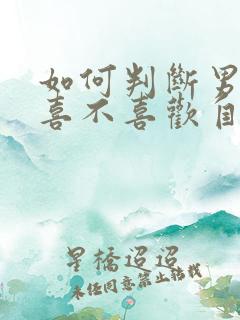 如何判斷男
喜不喜歡自
星橋迢迢
未經同意禁止轉載